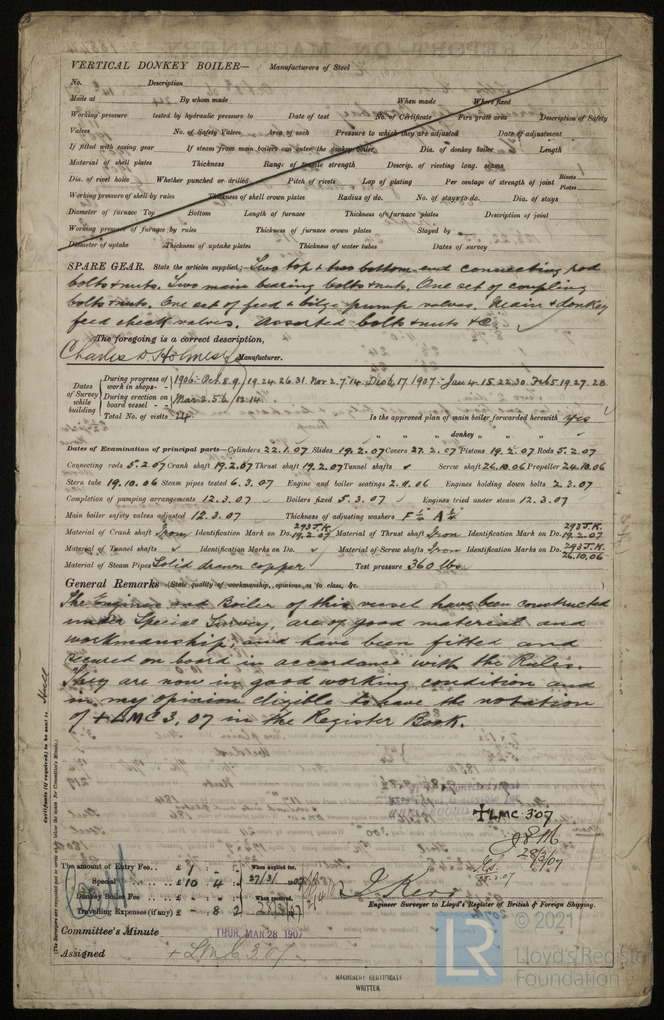 VERTICAL DONKEY BOILER— Manufacturers of Steel
No. Description
Made at By whom made When made Where fixed
Working pressure tested by hydraulic pressure to Date of test No. of Certificate Fire grate area Description of Safety
Valves No. of Safety Valves Area of each Pressure to which they are adjusted Date of adjustment
If fitted with easing gear If steam from main boilers can enter the donkey boiler Dia. of donkey boiler Length
Material of shell plates Thickness Range of tensile strength Descrip. of riveting long. seams
Dia. of rivet holes Whether punched or drilled Pitch of rivets Lap of plating Per centage of strength of joint Rivets Plates
Working pressure of shell by rules Thickness of shell crown plates Radius of do. No. of stays to do. Dia. of stays
Diameter of furnace Top Bottom Length of furnace Thickness of furnace plates Description of joint
Working pressure of furnace by rules Thickness of furnace crown plates Stayed by
Diameter of uptake Thickness of uptake plates Thickness of water tubes Dates of survey
SPARE GEAR. State the articles supplied:— Two top & two bottom end connecting rod
bolts & nuts. Two main bearing bolts & nuts. One set of coupling
bolts & nuts. One set of feed & bilge pump valves. Main & donkey
feed check valves. Assorted bolts & nuts &c
The foregoing is a correct description,
Charles D. Holmes & Co Manufacturer.
Dates of Survey while building
During progress of work in shops - - 1906:- Oct. 8. 9. 19. 24. 26. 31. Nov 2. 7. 14. Dec 6. 17. 1907:- Jan 4. 15. 22. 30. Feb 5. 19. 27. 28
During erection on board vessel - - - Mar 2. 5. 6. 12. 14.
Total No. of visits 24. Is the approved plan of main boiler forwarded herewith yes
" " " donkey " " "
Dates of Examination of principal parts—Cylinders 22.1.07 Slides 19.2.07 Covers 27.2.07 Pistons 19.2.07 Rods 5.2.07
Connecting rods 5.2.07 Crank shaft 19.2.07 Thrust shaft 19.2.07 Tunnel shafts ✓ Screw shaft 26.10.06 Propeller 24.10.06
Stern tube 19.10.06 Steam pipes tested 6.3.07 Engine and boiler seatings 2.11.06 Engines holding down bolts 2.3.07
Completion of pumping arrangements 12.3.07 Boilers fixed 5.3.07 Engines tried under steam 12.3.07
Main boiler safety valves adjusted 12.3.07 Thickness of adjusting washers
Material of Crank shaft Iron Identification Mark on Do. 293 J.K. 19.2.07 Material of Thrust shaft Iron Identification Mark on Do. 293 J.K. 19.2.07
Material of Tunnel shafts ✓ Identification Marks on Do. ✓ Material of Screw shafts Iron Identification Marks on Do. 293 J.K. 26.10.06
Material of Steam Pipes Solid drawn copper Test pressure 360 lbs.
General Remarks (State quality of workmanship, opinions as to class, &c.
The Engines and Boiler of this vessel have been constructed
under Special Survey, are of good material and
workmanship, and have been fitted and
secured on board in accordance with the Rules.
They are now in good working condition and
in my opinion eligible to have the notation
of + LMC 3, 07 in the Register Book.
Certificate (if required) to be sent to Hull
(The Surveyors are requested not to write on or below the space for Committee's Minute.)
+ LMC 3.07
28/3/07
The amount of Entry Fee.. £ 1 : - : When applied for,
Special .. .. £ 10 : 4 : 27/3/1907
Donkey Boiler Fee .. .. £ : : When received,
Travelling Expenses (if any) £ - : 8 : 2
J. Kerr
Engineer Surveyor to Lloyd's Register of British & Foreign Shipping.
Committee's Minute THUR. MAR 28 1907
Assigned + LMC 3.07
MACHINERY CERTIFICATE
WRITTEN.
LR
© 2021
Lloyd's Register
Foundation